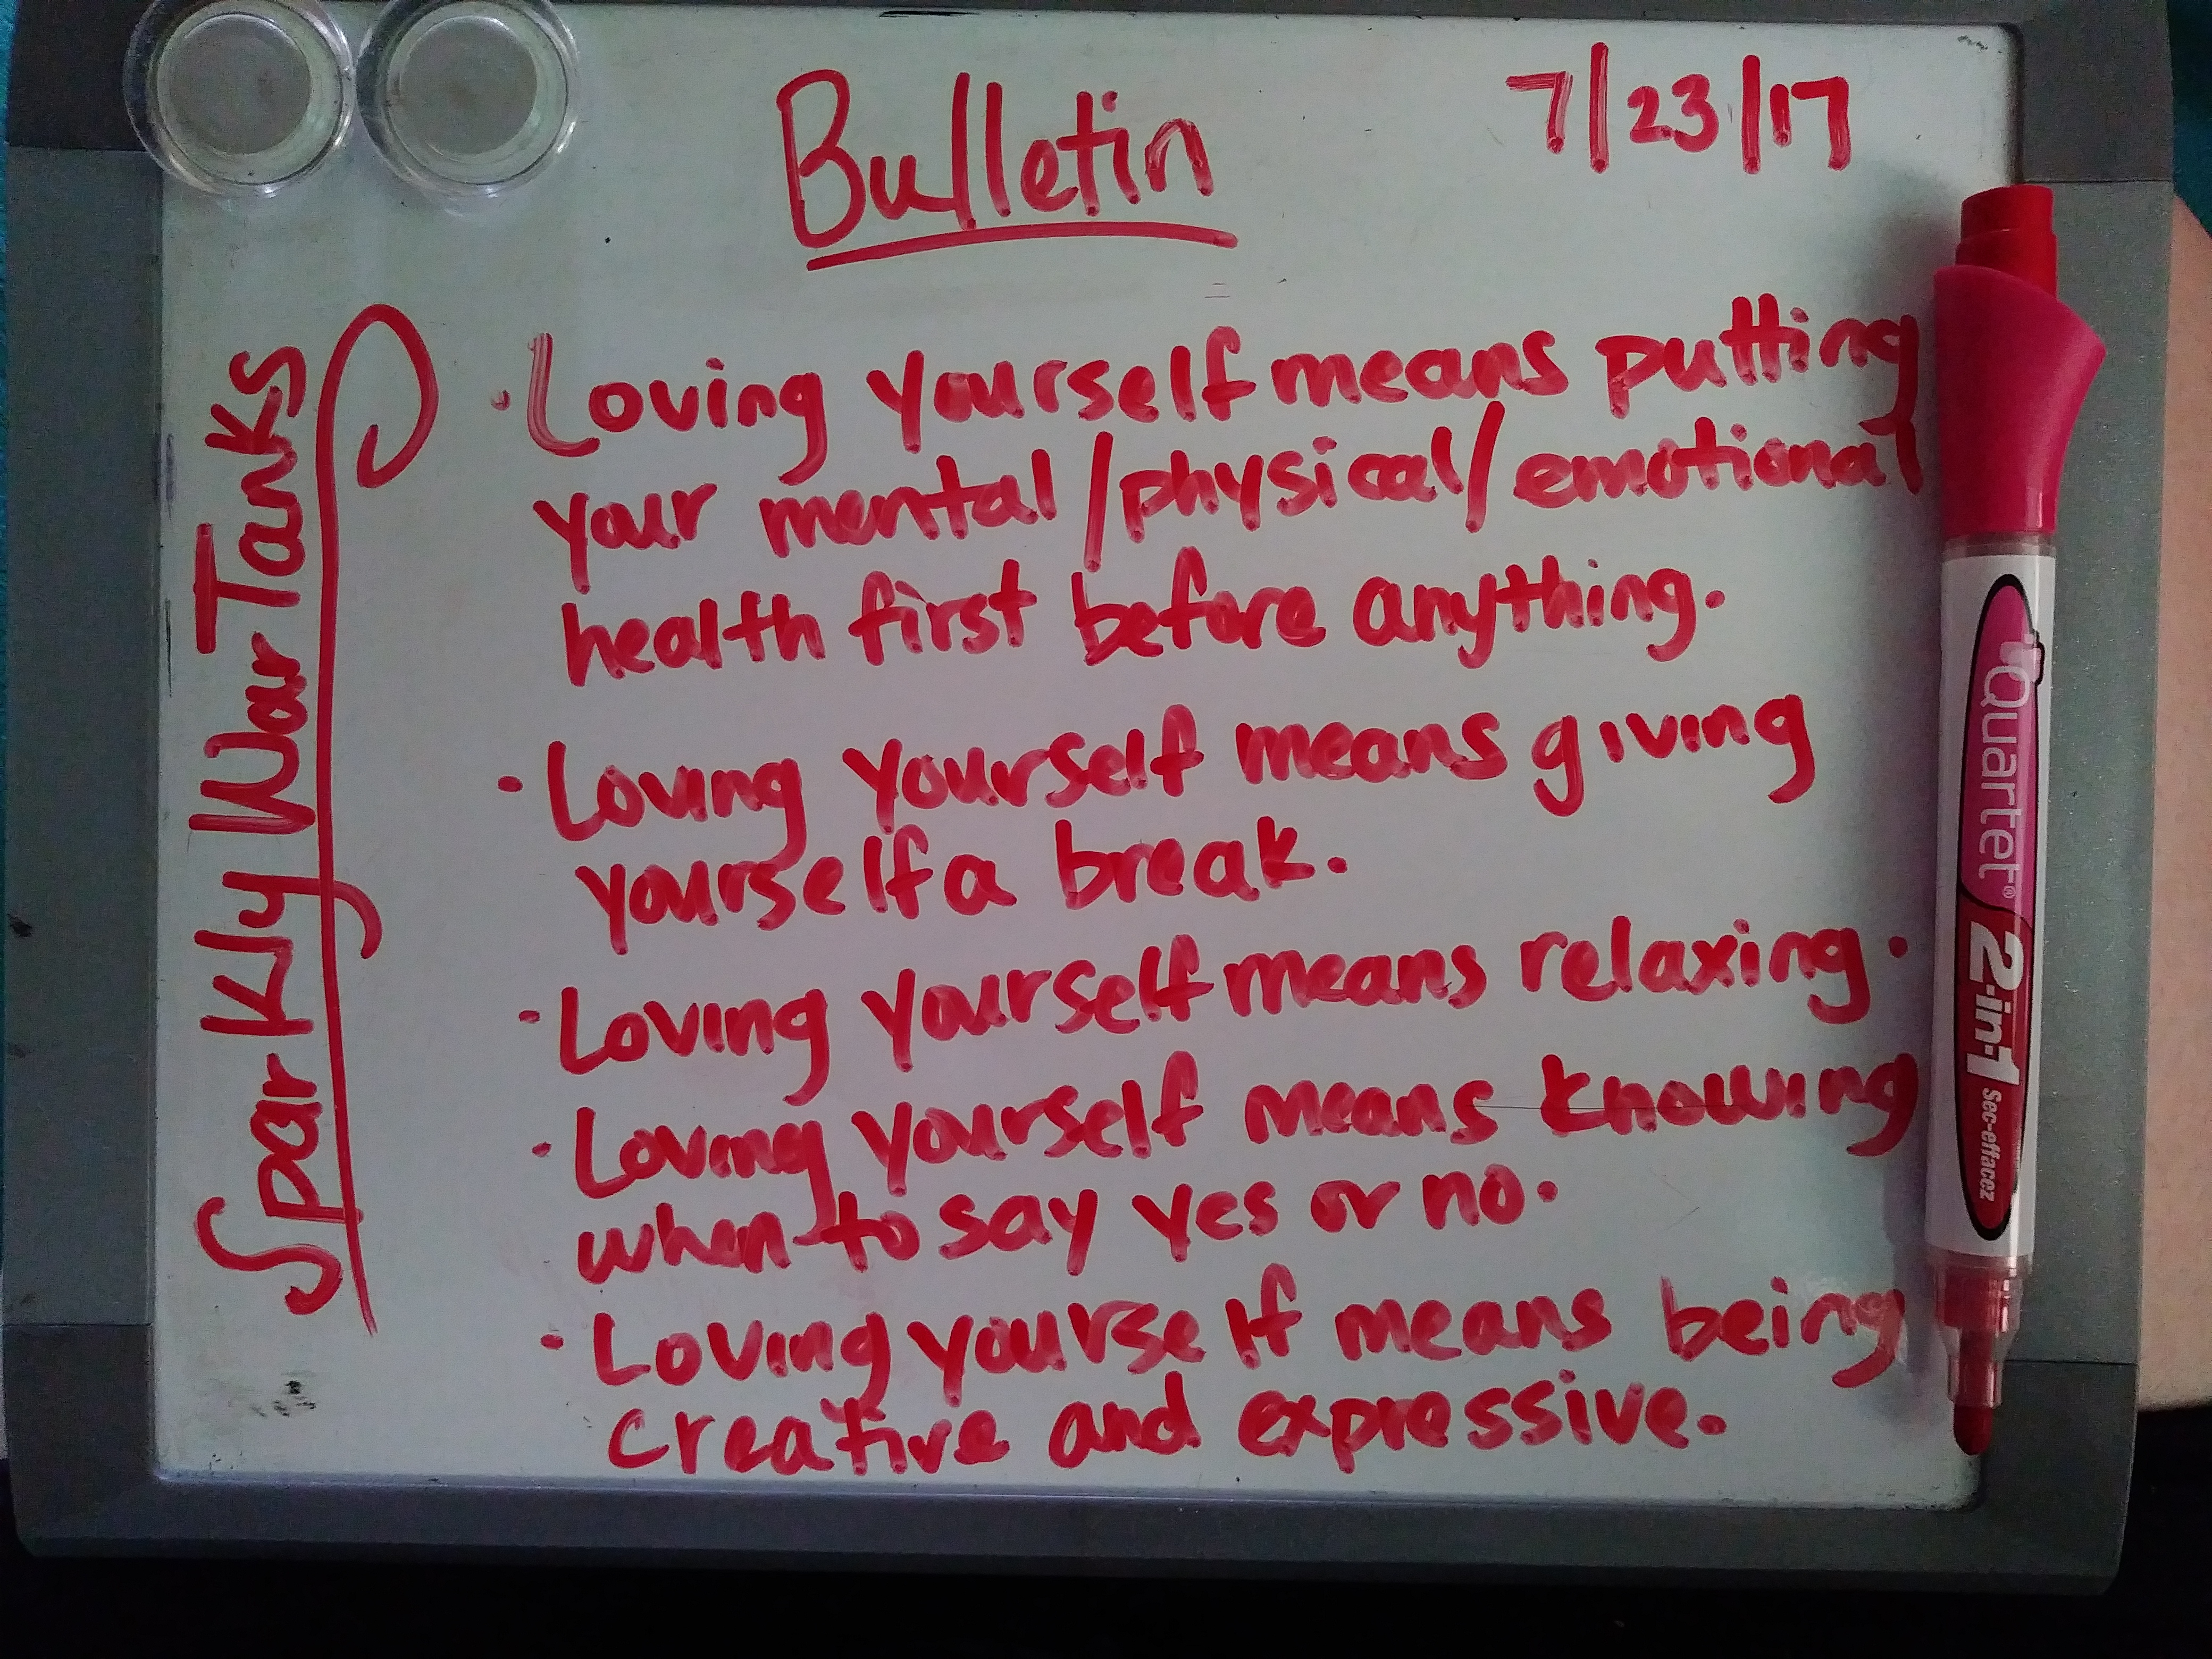 Bulletin
7/23/17
Sparkly War Tanks
· Loving yourself means putting
your mental/physical/emotional
health first before anything.
· Loving yourself means giving
yourself a break.
· Loving yourself means relaxing.
· Loving yourself means knowing
when to say yes or no.
· Loving yourself means being
creative and expressive.
Quartet® 2-in-1 Sec-effacez